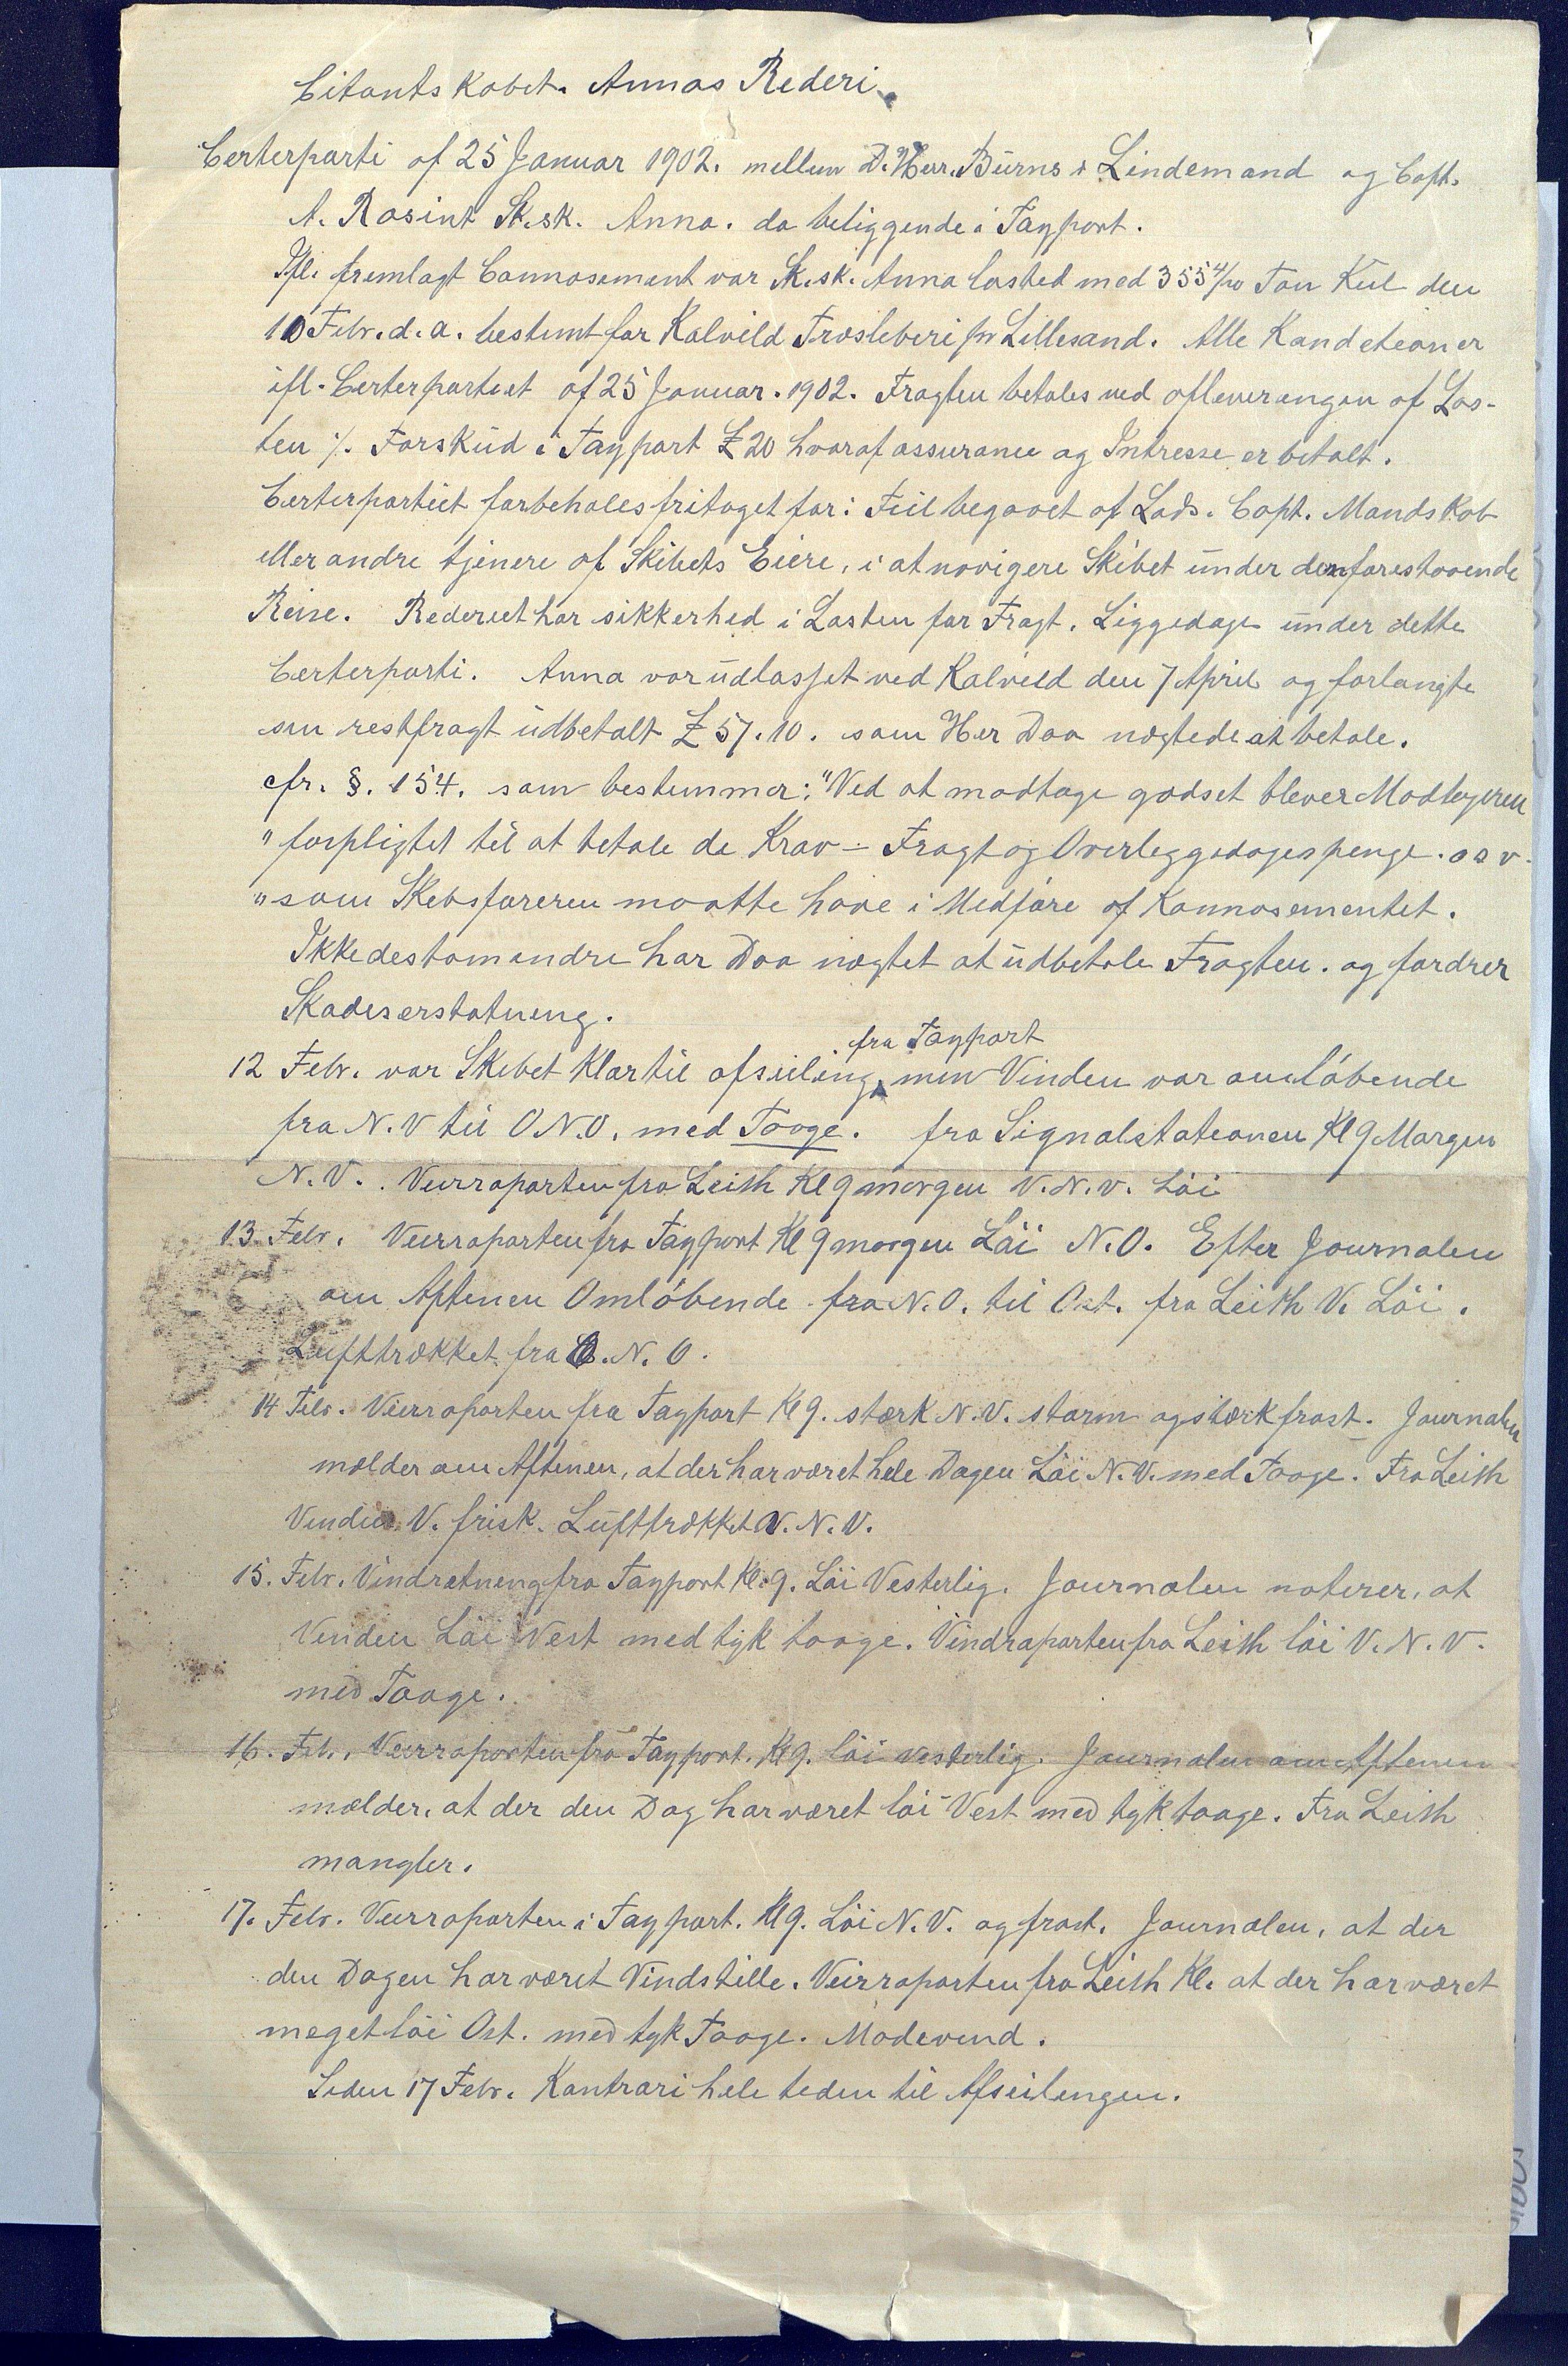 Citantskabet. Annas Rederi.
Certerparti af 25 Januar 1902. mellem D. Herr. Burns & Lindemand og Capt.
A. Rosint Sk.sk. Anna. da beliggende i Tayport.
Ifl. fremlagt Connosement var Sk.sk. Anna lasted med 355 4/20 Ton Kul den
10 Febr. d.a. bestemt for Kalvild Træsleberi pr Lillesand. Alle Kandetioner
ifl. Certerpartiet af 25 Januar. 1902. Fragten betales ved afleverangen af Las-
ten ./. Forskud i Tayport £ 20 hvoraf assurance og Intresse er betalt.
Certerpartiet forbeholes fritaget for: Feil begaaet af Lods. Capt. Mandskab
eller andre tjenere af Skibets Eiere, i at navigere Skibet under den forestaaende
Reise. Rederiet har sikkerhed i Lasten for Fragt. Liggedage under dette
Certerparti. Anna var udlasset ved Kalvild den 7 April og forlangte
sin restfragt udbetalt £ 57.10. som Her Daa nægtede at betale.
cfr. §. 154. som bestemmer: "Ved at modtage godset blever Modtageren
" forpligtet til at betale de Krav – Fragt og Overleggedagespenge. osv.
" som Skebsføreren maatte have i Medføre af Konnosementet.
Ikkedestomendre har Daa nægtet at udbetale Fragten. og fordrer
Skadeserstatneng.
fra Tayport
12 Febr. var Skibet Klar til afseiling, men Vinden var omløbende
fra N.V til O N.O. med Taage. fra Signalstationen Kl 9 Morgen
N.V. . Veirraporten fra Leith Kl 9 morgen V.N.V. Løi
13 Febr. Veirraporten fra Tayport Kl 9 morgen Løi N.O. Efter Journalen
om Aftenen Omløbende fra N.O. til Ost. fra Leith V. Løi.
Lufttrækket fra O.N.O.
14 Febr. Veirraporten fra Tayport Kl 9. stærk N.V. storm og stærk frost. Journalen
mælder om Aftenen, at der har været hele Dagen Løi N.V. med Taage. Fra Leith
Vinden V. frisk. Lufttrækket V.N.V.
15. Febr. Vindretneng fra Tayport Kl. 9. Løi Vesterlig. Journalen noterer, at
Venden Løi Vest med tyk taage. Vindraporten fra Leith løi V.N.V.
med Taage.
16. Feb. Veirraporten fra Tayport. Kl 9. løi vesterlig. Journalen om Aftenen
mælder, at der den Dag har været løi Vest med tyk taage. Fra Leith
mangler.
17. Febr. Veirraporten i Tayport. Kl 9. Løi N.V. og frost. Journalen, at der
den Dagen har været Vindstille. Veirraporten fra Leith Kl. at der har været
meget løi Ost. med tyk Taage. Modevend.
Seden 17 Febr. Kontrari hele teden til Afseilengen.